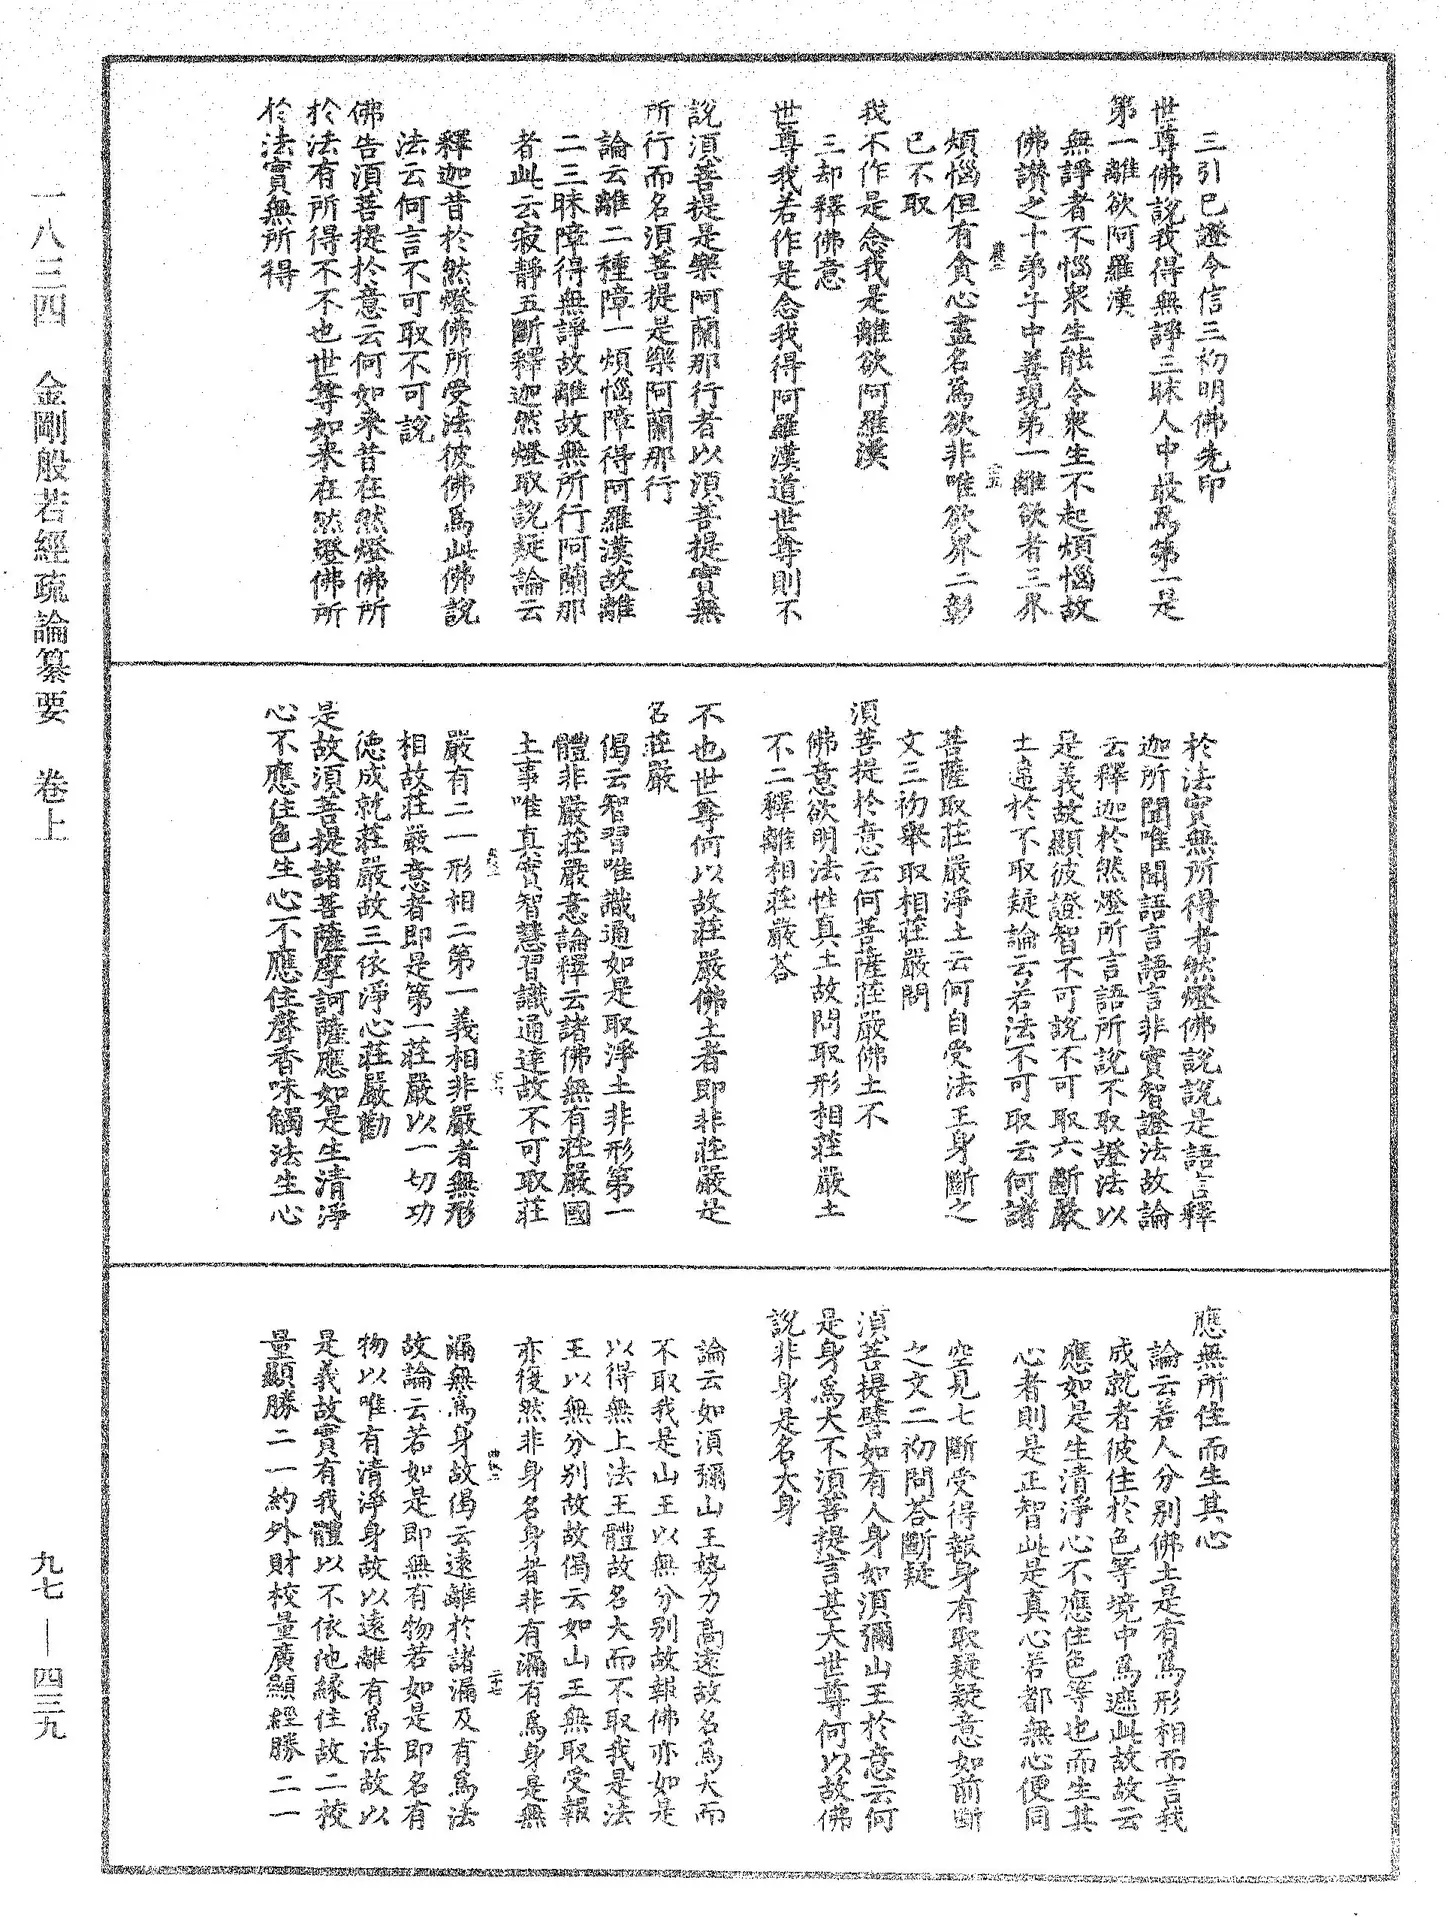 三引已證令信三初明佛先印
世尊佛說我得無諍三昧人中最爲第一是
第一離欲阿羅漢
無諍者不惱衆生能令衆生不起煩惱故
佛讚之十弟子中善現第一離欲者三界
煩惱但有貪心盡名爲欲非唯欲界二彰
已不取
我不作是念我是離欲阿羅漢
三却釋佛意
世尊我若作是念我得阿羅漢道世尊則不
說須菩提是樂阿蘭那行者以須菩提實無
所行而名須菩提是樂阿蘭那行
論云離二種障一煩惱障得阿羅漢故離
二三昧障得無諍故離故無所行阿蘭那
者此云寂靜五斷釋迦然燈取說疑論云
釋迦昔於然燈佛所受法彼佛爲此佛說
法云何言不可取不可說
佛告須菩提於意云何如來昔在然燈佛所
於法有所得不不也世尊如來在然燈佛所
於法實無所得
於法實無所得者然燈佛說說是語言釋
迦所聞唯聞語言語言非實智證法故論
云釋迦於然燈所言語所說不取證法以
是義故顯彼證智不可說不可取六斷嚴
土違於不取疑論云若法不可取云何諸
菩薩取莊嚴淨土云何自受法王身斷之
文三初舉取相莊嚴問
須菩提於意云何菩薩莊嚴佛土不
佛意欲明法性真土故問取形相莊嚴土
不二釋離相莊嚴荅
不也世尊何以故莊嚴佛土者即非莊嚴是
名莊嚴
偈云智習唯識通如是取淨土非形第一
體非嚴莊嚴意論釋云諸佛無有莊嚴國
土事唯真實智慧習識通達故不可取莊
嚴有二一形相二第一義相非嚴者無形
相故莊嚴意者即是第一莊嚴以一切功
德成就莊嚴故三依淨心莊嚴勸
是故須菩提諸菩薩摩訶薩應如是生清淨
心不應住色生心不應住聲香味觸法生心
應無所住而生其心
論云若人分別佛土是有爲形相而言我
成就者彼住於色等境中爲遮此故故云
應如是生清淨心不應住色等也而生其
心者則是正智此是真心若都無心便同
空見七斷受得報身有取疑疑意如前斷
之文二初問荅斷疑
須菩提譬如有人身如須彌山王於意云何
是身爲大不須菩提言甚大世尊何以故佛
說非身是名大身
論云如須彌山王勢力高遠故名爲大而
不取我是山王以無分別故報佛亦如是
以得無上法王體故名大而不取我是法
王以無分別故故偈云如山王無取受報
亦復然非身名身者非有漏有爲身是無
漏無爲身故偈云遠離於諸漏及有爲法
故論云若如是即無有物若如是即名有
物以唯有清淨身故以遠離有爲法故以
是義故實有我體以不依他緣住故二挍
量顯勝二一約外財校量廣顯經勝二一
一八三四　金剛般若經疏論纂要　卷上
九七——四三九